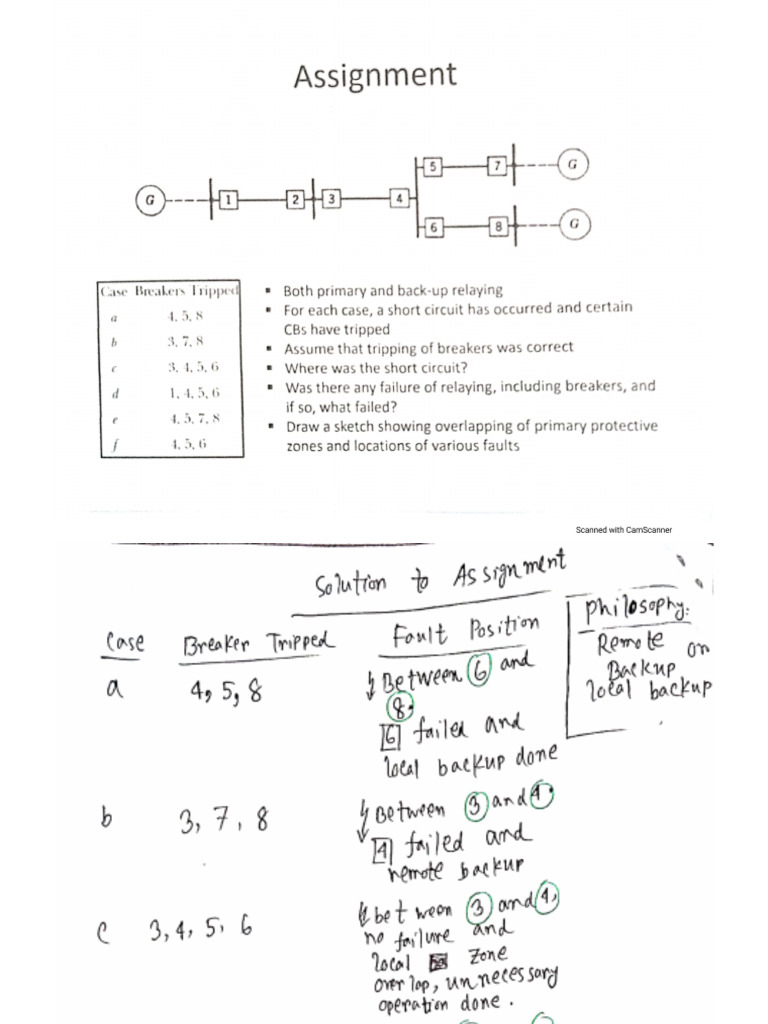 Assignment
G 1 2 3 4 5 7 G
6 8 G
Case Breakers Tripped
a 4, 5, 8
b 3, 7, 8
c 3, 4, 5, 6
d 1, 4, 5, 6
e 4, 5, 7, 8
f 4, 5, 6
▪ Both primary and back-up relaying
▪ For each case, a short circuit has occurred and certain
CBs have tripped
▪ Assume that tripping of breakers was correct
▪ Where was the short circuit?
▪ Was there any failure of relaying, including breakers, and
if so, what failed?
▪ Draw a sketch showing overlapping of primary protective
zones and locations of various faults
Scanned with CamScanner
Solution to Assignment
Philosophy:
Remote or
Backup
local backup
Case Breaker Tripped Fault Position
a 4, 5, 8 Between 6 and
8.
6 failed and
local backup done
b 3, 7, 8 Between 3 and 4.
4 failed and
remote backup
c 3, 4, 5, 6 between 3 and 4,
no failure and
local zone
overlap, unnecessary
operation done.